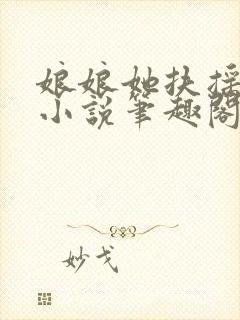 娘娘她扶摇
小說筆趣閣
妙戈